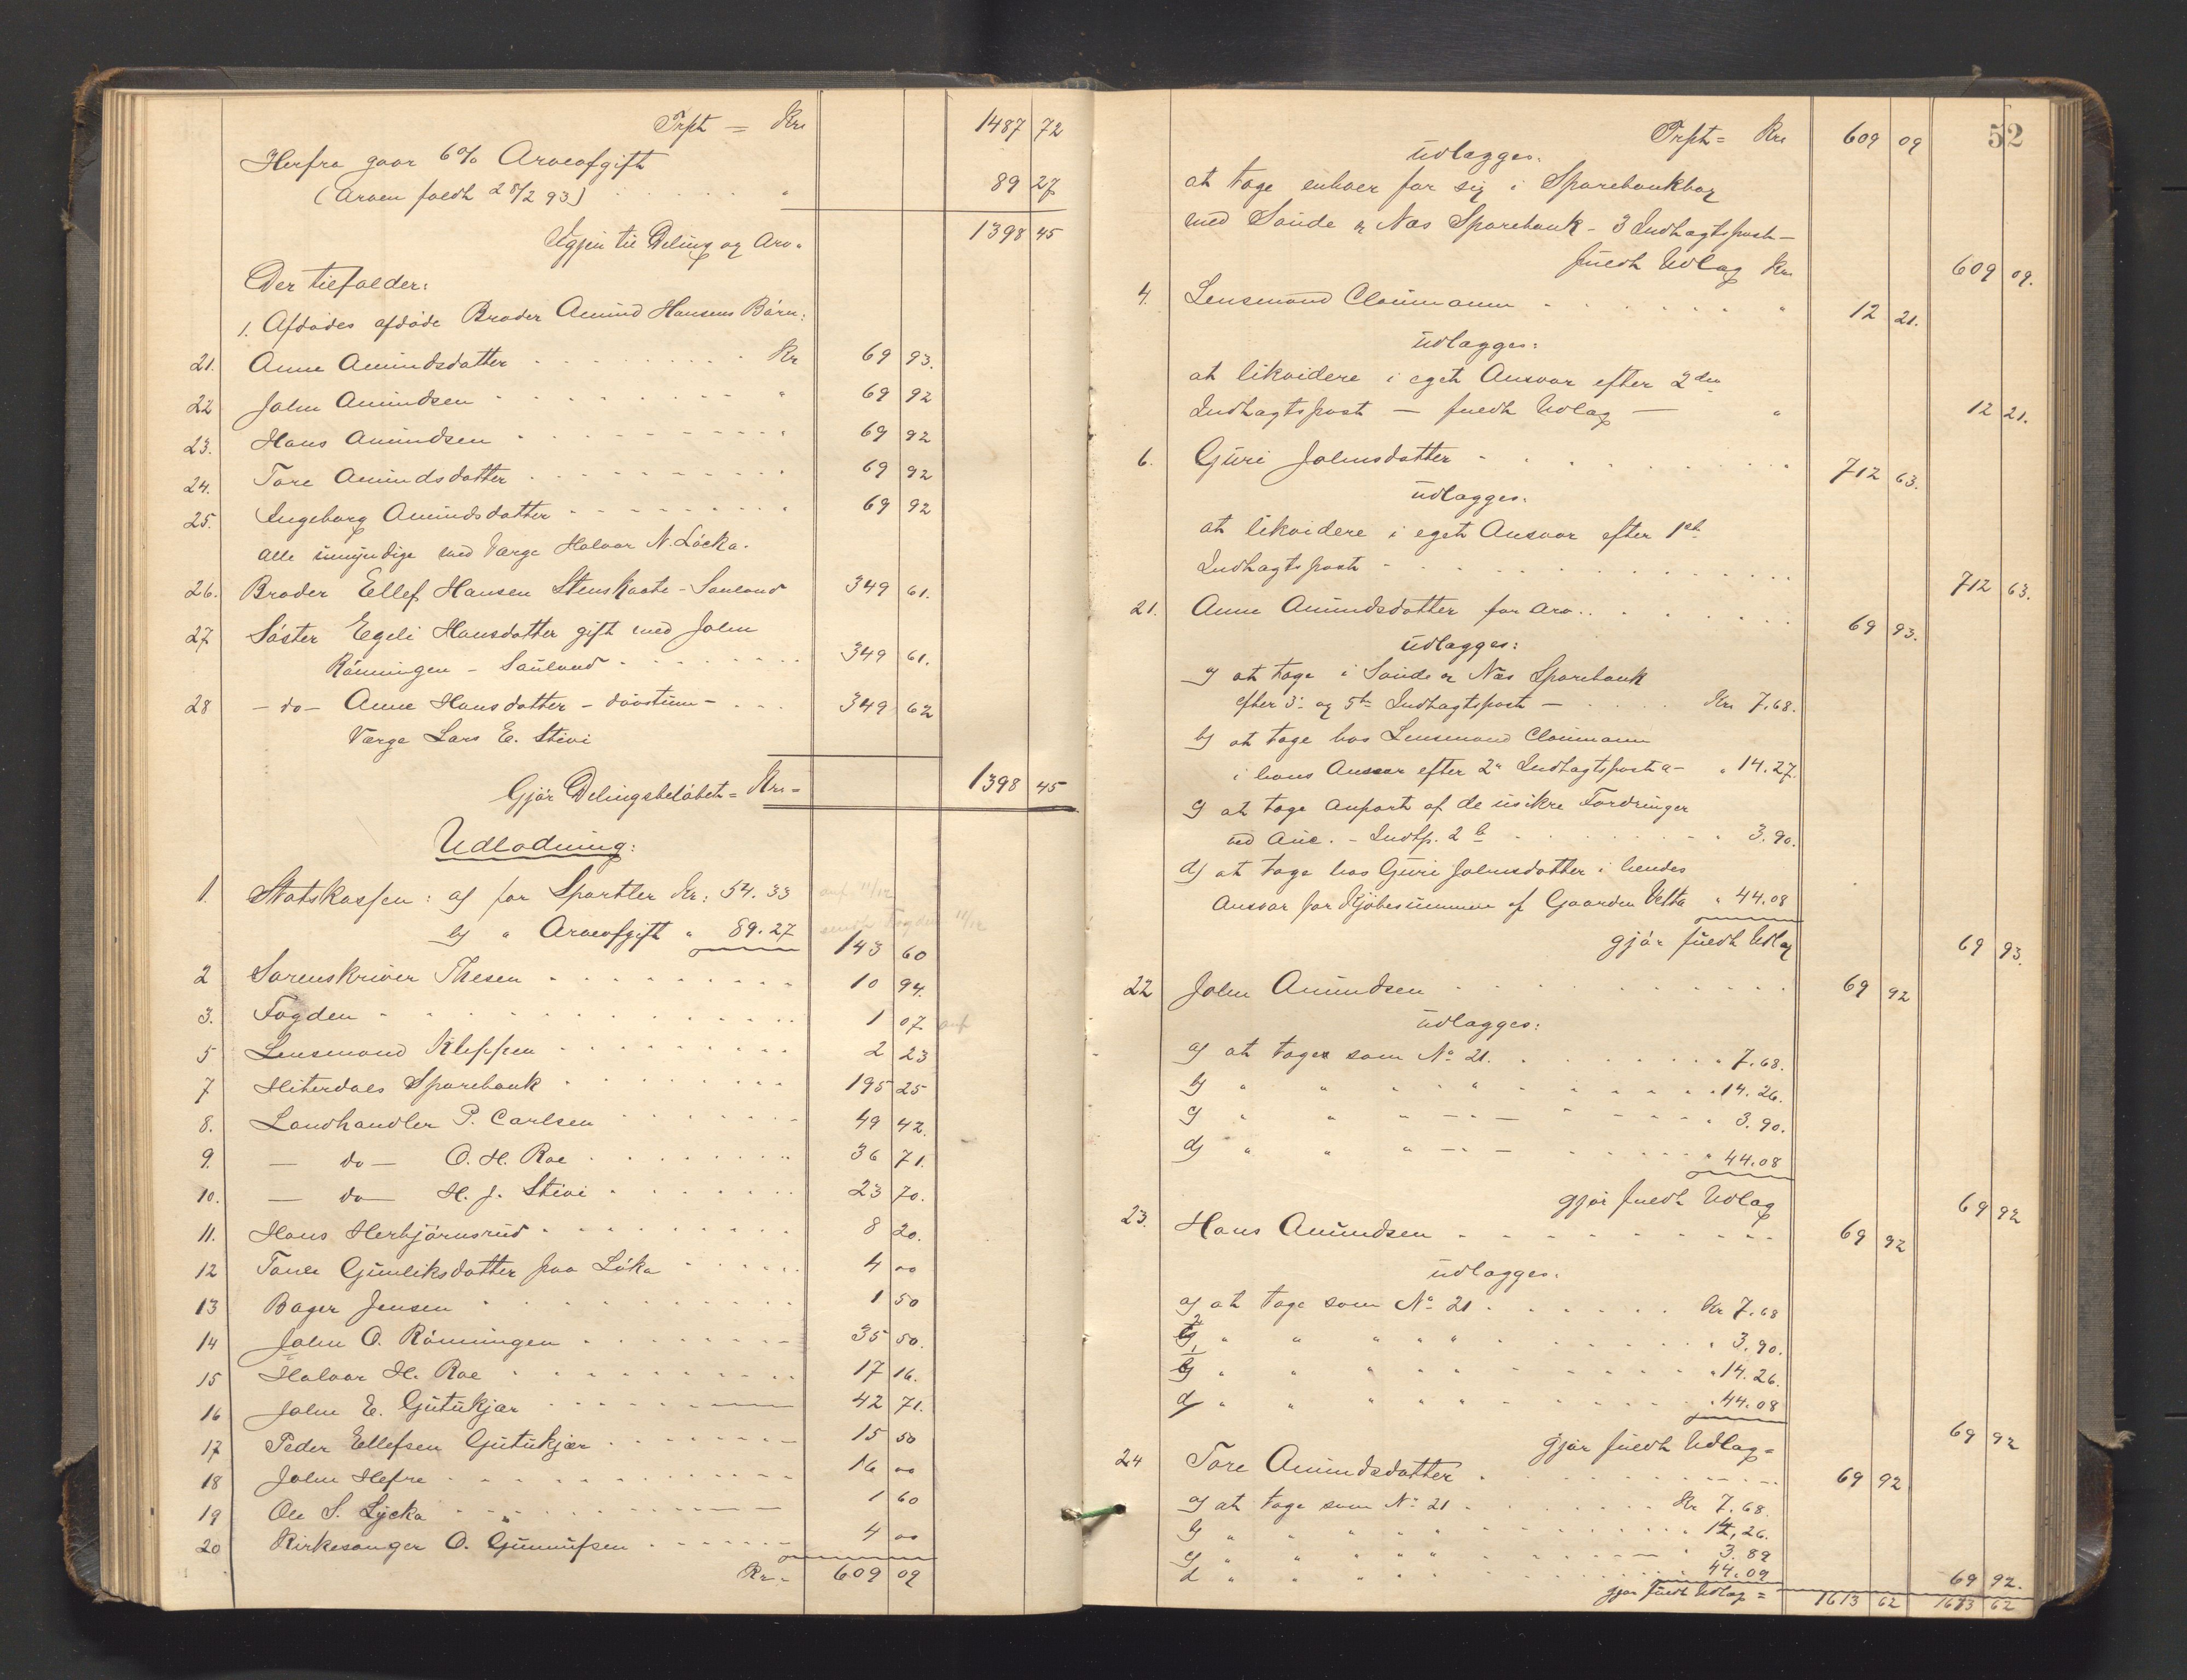 Trpt = Kr. 1487 72
Herfra gaar 6% Arveafgift
(Arven faldt 28/2 93) . . . . " 89 27
Igjen til Deling og Arv = 1398 45
Der tilfalder:
1. Afdødes afdøde Broder Amund Hansens Børn:
21. Anne Amundsdatter . . . . Kr 69 93.
22 John Amundsen . . . . " 69 92
23. Hans Amundsen . . . . " 69 92
24. Tore Amundsdatter . . . . " 69 92
25. Ingeborg Amundsdatter . . . . " 69 92
alle umyndige med Værge Halvor N. Løcka.
26. Broder Ellef Hansen Stenskaate - Sauland 349 61.
27 Søster Egeli Hansdatter gift med John
Rønningen - Sauland . . . . 349 61.
28 - do - Anne Hansdatter - døvstum - . . . 349 62
Værge Lars E. Stivi
Gjør Delingsbeløbet = Kr. = 1398 45
Udlodning:
1. Statskassen: a) for Sportler Kr: 54. 33
b) " Arveafgift " 89. 27 143 60
2 Sorenskriver Thesen . . . . 10 94.
3. Fogden . . . . 1 07
5 Lensmand Kleppen . . . . 2 23
7 Hiterdals Sparebank . . . . 195 25
8. Landhandler P. Carlsen . . . . 49 42.
9. — do — O. H. Roe . . . . 36 71.
10. — do — H. J. Stivi . . . . 23 70.
11. Hans Herbjørnsrud . . . . 8 20.
12 Tone Gunleiksdatter paa Løka . . . . 4 00
13 Bager Jensen . . . . 1 50
14 John O. Rønningen . . . . 35 50.
15 Halvor H. Roe . . . . 17 16.
16 John E. Gutukjær . . . . 42 71.
17 Peder Ellefsen Gutukjær . . . . 15 50
18 John Hefre . . . . 16 00
19 Ole S. Lycka . . . . 1 60
20 Kirkesanger O. Gunnufsen . . . . 4 00
Kr. = 609 09
52
Trpt = Kr. 609 09
udlægges:
at tage enhver for sig i Sparebankbog
med Saude & Næs Sparebank - 3 Indtægtspost -
fuldt Udlæg Kr. 609 09.
4. Lensmand Claumann . . . . " 12 21.
udlægges:
at likvidere i eget Ansvar efter 2den
Indtægtspost — fuldt Udlæg — " 12 21.
6. Guri Johnsdatter . . . . " 712 63.
udlægges:
at likvidere i eget Ansvar efter 1ste
Indtægtspost . . . . 712 63.
21. Anne Amundsdatter for Arv . . . . 69 93.
udlægges:
a) at tage i Saude & Næs Sparebank
efter 3: og 5te Indtægtspost — . . . . Kr. 7.68.
b) at tage hos Lensmand Claumann
i hans Ansvar efter 2n Indtægtspost a - " 14.27.
c) at tage Anpart af de usikre Fordringer
ved Auc. - Indtp. 2 b . . . . " 3.90.
d) at tage hos Guri Johnsdatter i hendes
Ansvar for Kjøbesummen af Gaarden Vetta " 44.08
gjør fuldt Udlæg 69 93.
22 John Amundsen . . . . 69 92
udlægges:
a) at tages som No 21. . . . . " 7.68.
b) " " " " . . . . " 14.26.
c) " " " — - — " . . . . " 3.90.
d) " " " — - — . . . . " 44.08
gjør fuldt Udlæg 69 92
23. Hans Amundsen . . . . 69 92
udlægges:
a) at tage som No 21 . . . . Kr 7.68
c) " " " " " . . . . " 3.90.
b) " " " " " . . . . " 14.26.
d) " " " " " . . . . " 44.08
gjør fuldt Udlæg = 69 92
24 Tore Amundsdatter . . . . 69 92
a) at tage som No 21 . . . . Kr 7.68.
b) " " " " " . . . . " 14,26.
c) " " " " " . . . . " 3.89
d " " " " . . . . 44.09
gjør fuldt Udlæg = 69 92.
1613 62 1613 62